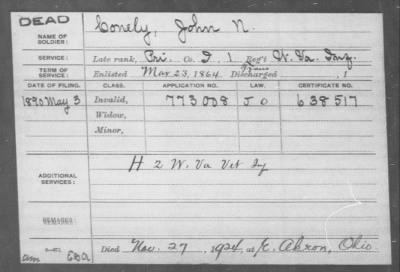 DEAD
NAME OF SOLDIER: Conely, John N.
SERVICE: Late rank, Pri. Co. I, 1 Reg't W. Va. Inf.
TERM OF SERVICE: Enlisted Mar 23, 1864. Discharged , 1
DATE OF FILING. CLASS. APPLICATION NO. LAW. CERTIFICATE NO.
1890 May 3 Invalid, 773008 J O 638517
Widow,
Minor,
ADDITIONAL SERVICES: H 2 W. Va Vet Iy
REMARKS:
Died Nov. 27, 1924, at E. Akron, Ohio.